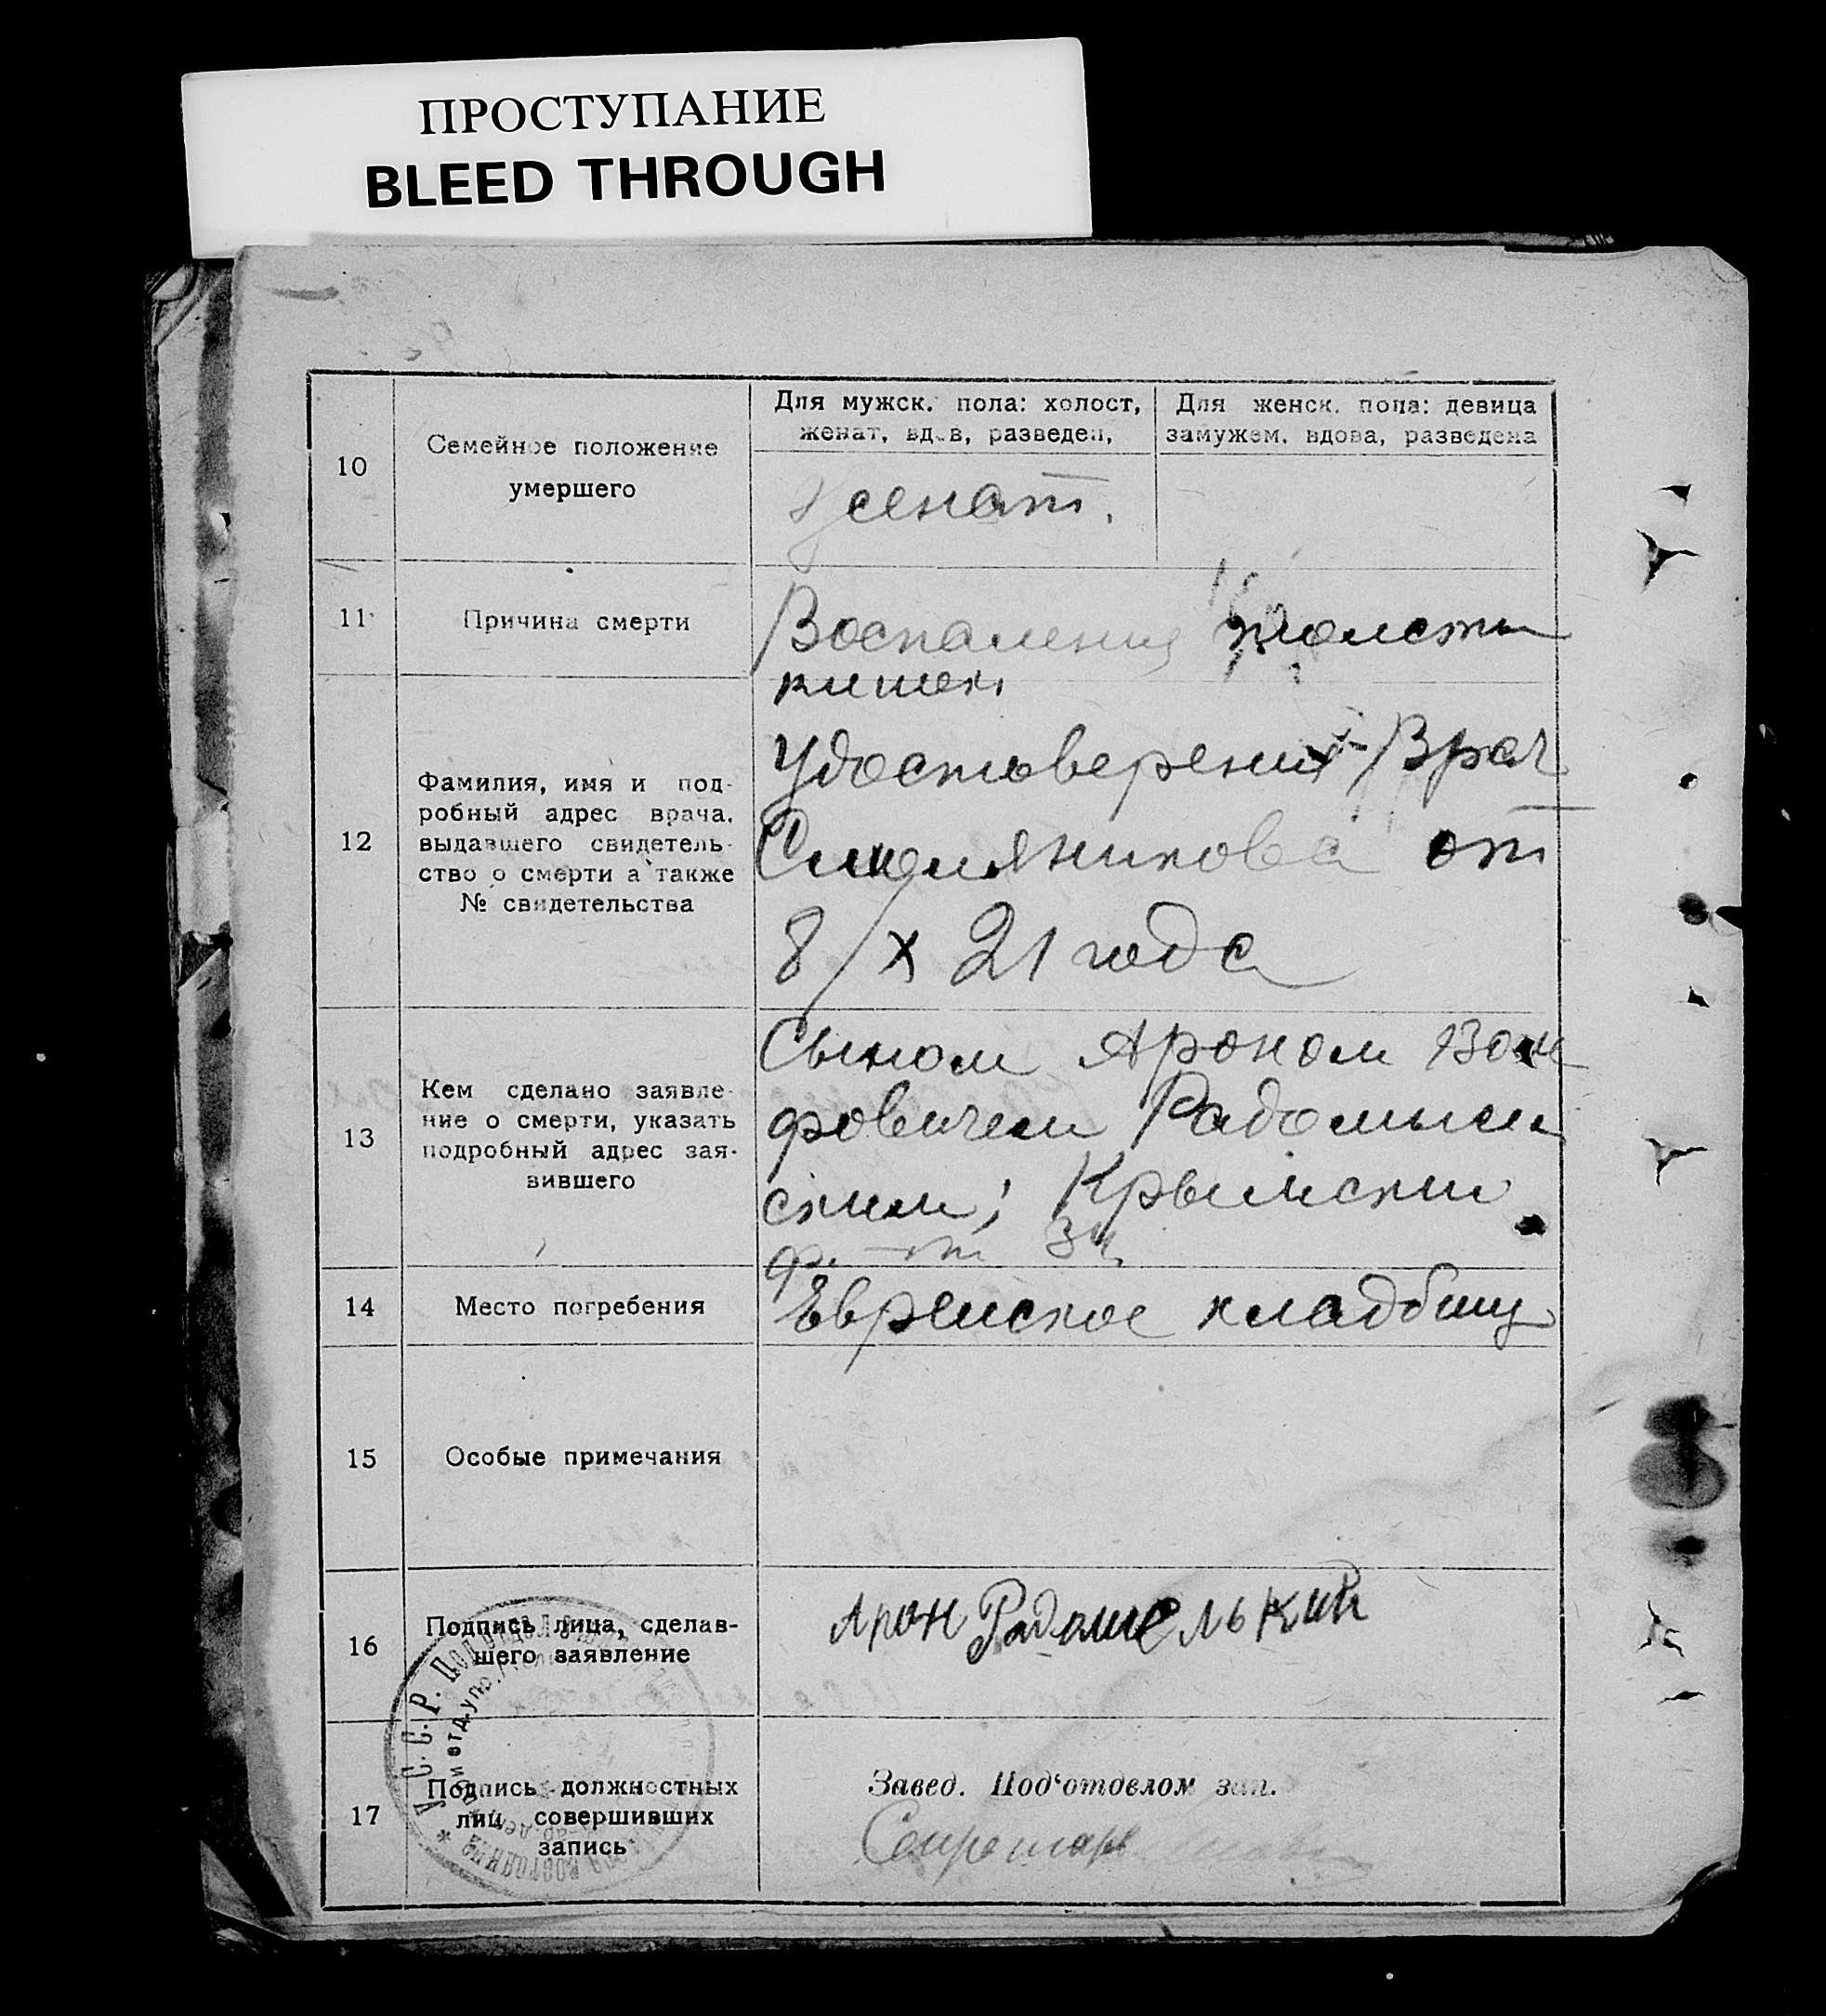 ПРОСТУПАНИЕ
BLEED THROUGH
10
Семейное положение
умершего
Для мужск. пола: холост,
женат, вдов, разведен,
Для женск. пола: девица
замужем, вдова, разведена
женат.
11
Причина смерти
Воспаления толсты
кишек
12
Фамилия, имя и под-
робный адрес врача,
выдавшего свидетель-
ство о смерти а также
№ свидетельства
Удостоверения Врач
от
8/X 21 года
13
Кем сделано заявле-
ние о смерти, указать
подробный адрес зая-
вившего
Сыном Ароном
фовичем Радомысл
ским; Крымски
14
Место погребения
Еврейское кладбищ
15
Особые примечания
16
Подпись лица, сделав-
шего заявление
Арон
17
Подпись должностных
лиц совершивших
запись
Завед. Под‘отделом зап.
Секретарь